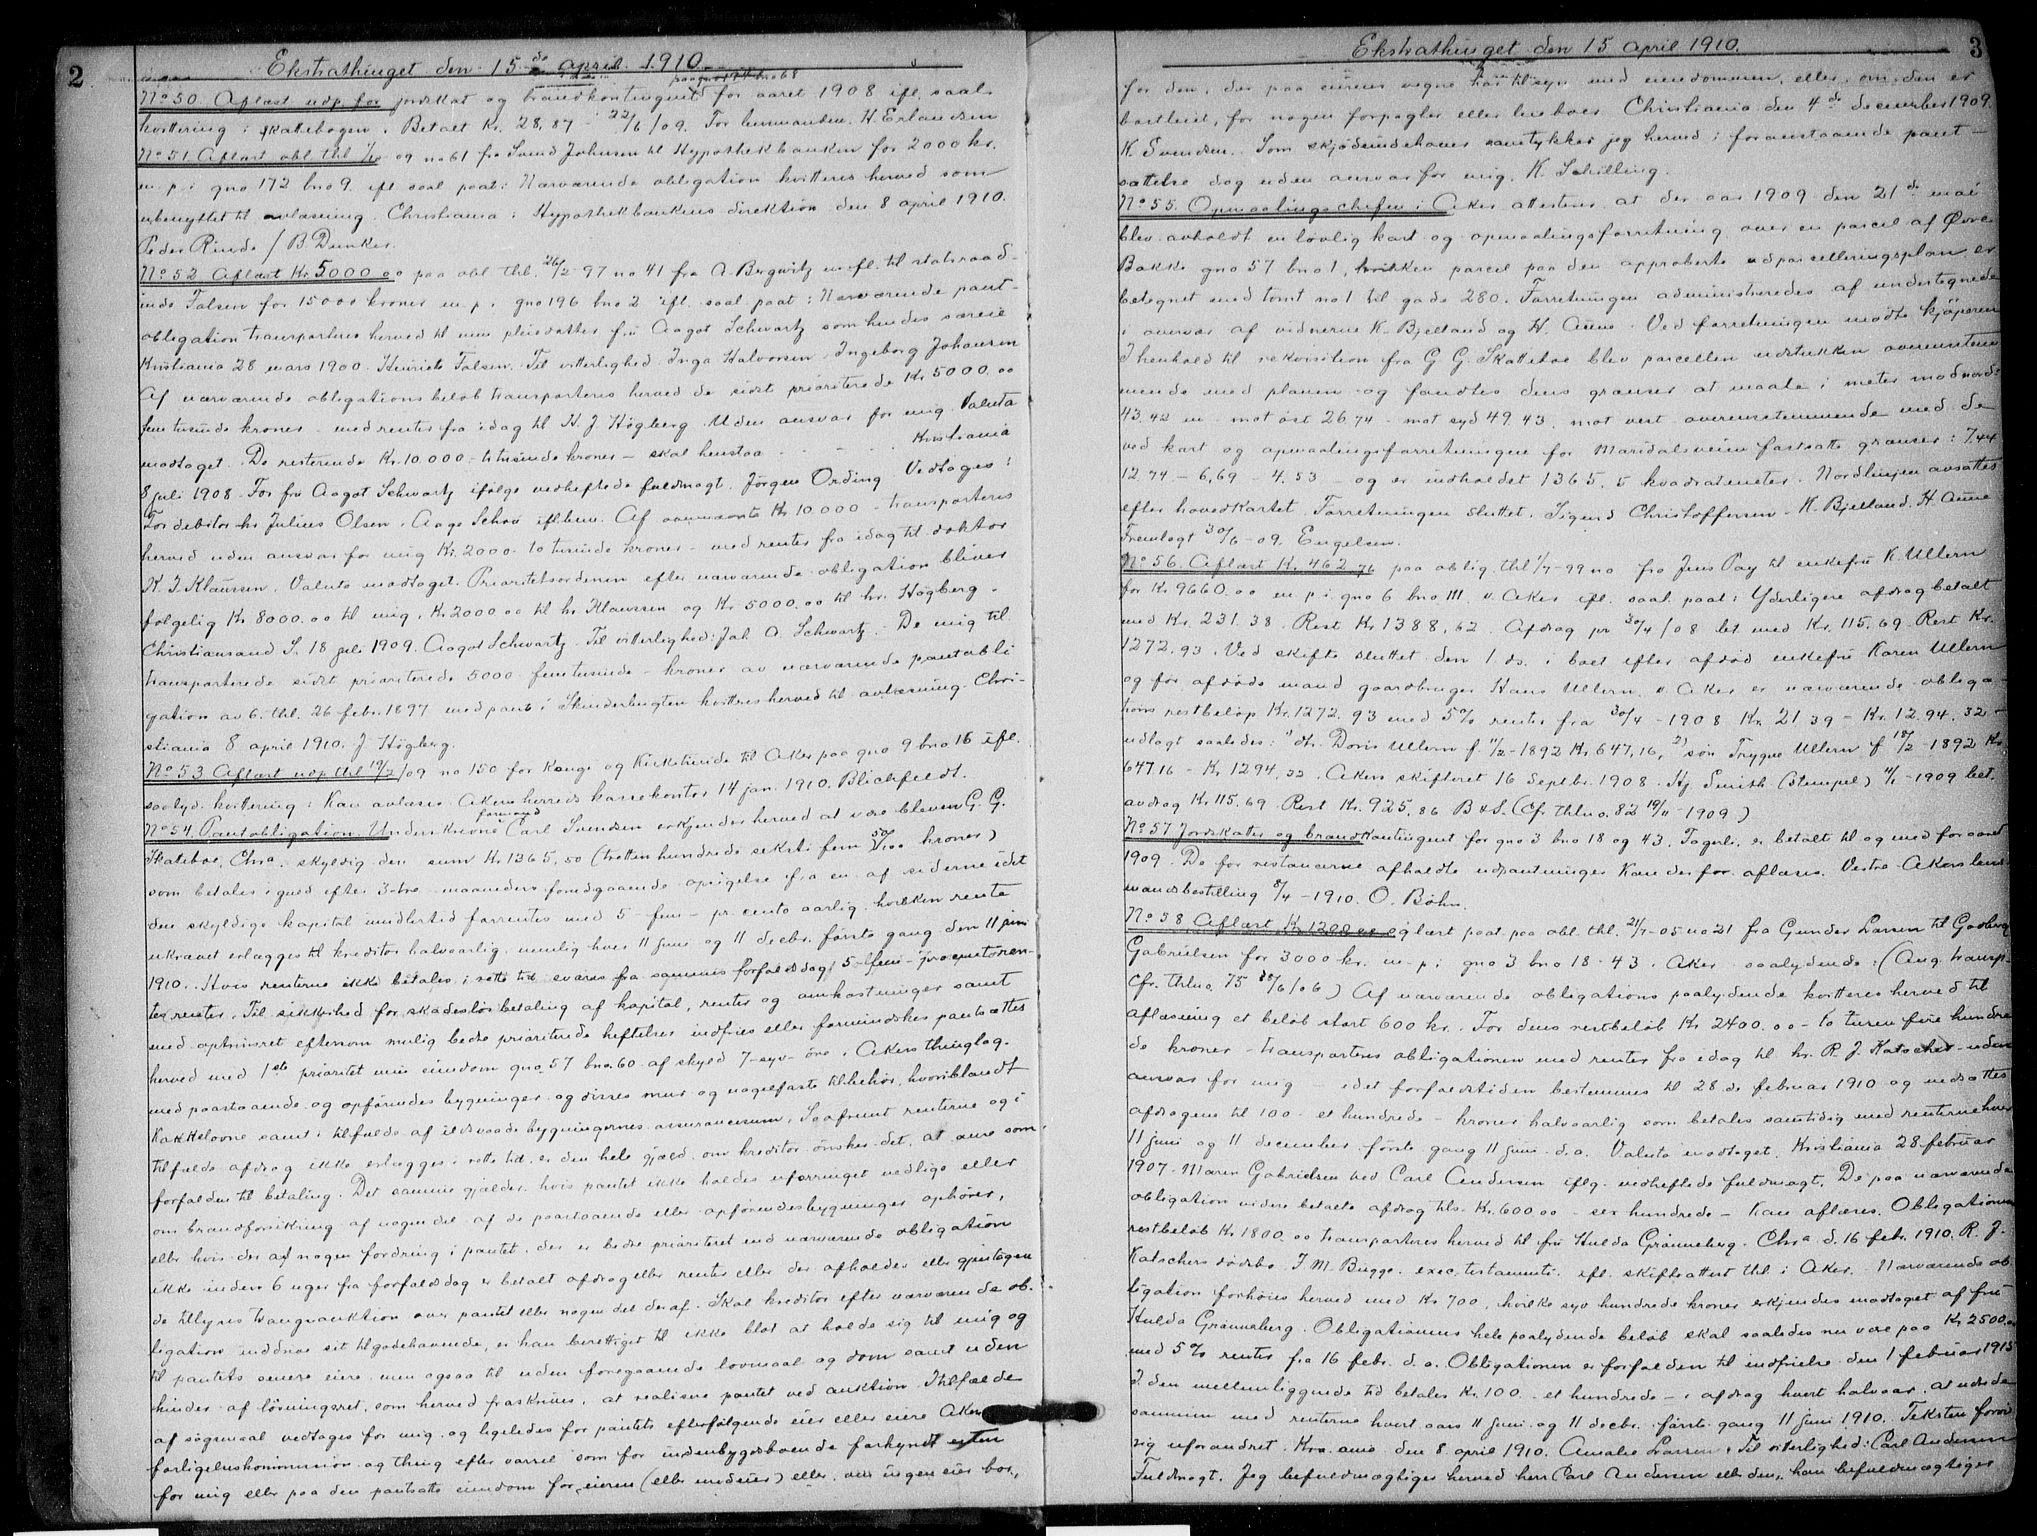 2
Ekstrathinget den 15de april 1910.
paa gno 14 bno 68
No 50 Aflæst udp. for jordskat og brandkontingent for aaret 1908 ifl. saal.
kvittering i skattebogen. Betalt Kr. 28,87 - 22/6/09. For lensmanden. H. Erlandsen
No 51 Aflæst obl. thl og no 61 fra Svend Johnsen til Hypothekbanken for 2000 kr.
m. p. i gno 172 bno 9. ifl saal paat: Nærværende obligation kvitteres herved som
ubenyttet til avlæsning. Christiania i Hypothekbankens direktion den 8 april 1910.
Peder Rinde / B Dunker.
No 52 Aflæst Kr 5000 00 paa obl thl. 26/2-97 no 41 fra A. Bergwitz m. fl. til statsraad-
inde Falsen for 15000 kroner m. p. i gno 196 bno 2 ifl. saal paat: Nærværende pant-
obligation transporteres herved til min pleiedatter fru Aagot Schwartz som hendes særeie
Kristiania 28 mars 1900. Henriette Falsen. Til vitterlighed. Inga Halvorsen. Ingeborg Johansen
Af nærværende obligationsbeløb transporteres herved de sidst prioriterede Kr 5000.00
femtusinde kroner - med renter fra idag til H. J. Høgberg. Uden ansvar for mig. Valuta
modtaget. De resterende Kr. 10.000 - titusinde kroner - skal henstaa - - - - Kristiania
8 juli 1908. For fru Aagot Schwartz ifølge vedheftede fuldmagt. Jørgen Ording Vedtages:
For debitor hr Julius Olsen. Aage Schou ifl. Af ovennævnte Kr 10.000 - transporteres
herved uden ansvar for mig Kr. 2000 - to tusinde kroner - med renter fra idag til doktor
K. J. Klaussen. Valuta modtaget. Prioritetsordenen efter nærværende obligation bliver
følgelig Kr 8000.00 til mig, Kr. 2000 00 til hr. Klaussen og Kr 5000.00 til hr. Høgberg.
Christiansand S. 18 juli 1909. Aagot Schwartz. Til vitterlighed: Joh. A. Schwartz. De mig til
transporterede sidst prioriterede 5000 femtusinde - kroner av nærværende pantobli
gation av 6. thl. 26 febr. 1897 med pant i Skinderbugten kvitteres herved til avlæsning. Chri-
stiania 8 april 1910. J Høgberg.
No 53 Aflæst udp. thl 19/2/09 no 150 for Konge og Kirketiende til Aker paa gno 9 bno 16 ifl.
saalyd. kvittering: Kan avlæses. Akers herreds kassekontor 14 jan. 1910. Blichfeldt.
No 54. Pantobligation. Underskrevne formand Carl Svendsen erkjender herved at være bleven G. G.
Skatteboe, Chra. skyldig den sum Kr 1365,50 (tretten hundrede seksti fem 50/100 kroner)
som betales i guld efter 3-tre - maaneders forudgaaende opsigelse fra en af siderne idet
den skyldige kapital imidlertid forrentes med 5 - fem - pr. cento aarlig. hvilken rente
ukrævet erlægges til kreditor halvaarlig, nemlig hver 11 juni og 11 decbr. første gang den 11 juni
1910. Hvis renterne ikke betales i rette tid, svares fra sammes forfaldsdag 5 fem - procentoren-
tes renter. Til sikkerhed for skadesløs betaling af kapital, renter og omkostninger samt
med optrinsret eftersom mulig bedre prioriterede heftelser indfries eller formindskes pantsættes
herved med 1ste prioritet min eiendom gno. 57 bno. 60 af skyld 7 - syv - øre i Akers thinglag.
med paastaaende og opførendes bygninger, og disses mur og nagelfaste tilbehør, hvoriblandt
Kakkelovne samt i tilfælde af ildsvaade bygningernes assurancesum. Saafremt renterne og i
tilfælde afdrag ikke erlægges i rette tid er den hele gjæld. om kreditor ønsker det, at anse som
forfalden til betaling. Det samme gjælder. hvis pantet ikke holdes uforringet vedlige eller
om brandforsikring af nogen del af de paastaaende eller opførendes bygninger ophører,
eller hvis der af nogen fordring i pantet, der er bedre prioriteret end nærværende obligation
ikke inden 6 uger fra forfaldsdag er betalt afdrag eller renter eller der afholdes eller gjentagen
de tillyses tvangsauktion over pantet eller nogen del deraf. Skal kreditor efter nærværende ob-
ligation inddrive sit tilgodehavende, er han berettiget til ikke blot at holde sig til mig og
til pantets senere eiere men ogsaa til uden foregaaende lovmaal og dom samt uden
hinder af løsningsret, som herved fraskrives, at realisere pantet ved auktion. I tilfælde
af søgsmaal vedtages for mig og ligeledes for pantets efterfølgende eier eller eiere Akers
forligelseskommission og thing efter varsel som for indenbygdsboende forkyndt enten
for mig eller paa den pantsatte eiendom for eieren (eller medeier) eller. om ingen eier bor,
3
Ekstrathinget den 15 april 1910.
for den, der paa eierens vegne har tilsyn med eiendommen, eller, om den er
bortleiet, for nogen forpagter eller leieboer. Christiania den 4de december 1909.
K. Svendsen. Som skjødeindehaver samtykker jeg herved i foranstaaende pant-
sættelse dog uden ansvar for mig. K. Schilling.
No 55. Opmaalingschefen i Aker attesterer at der aar 1909 den 21de mai
blev avholdt en lovlig kart og opmaalingsforretning over en parcel af Øvre
Bakke gno 57 bno 1, hvilken parcel paa den approberte udparcelleringsplan er
betegnet med tomt no 1 til gade 280. Forretningen administreredes af undertegnede
i overvær af vidnerne K. Bjelland og H. Aune. Ved forretningen mødte kjøperen
I henhold til rekvisition fra G G. Skatteboe blev parcellen udstukken overensstem
mende med planen og fandtes dens grænser at maale i meter mod nord:
43.42 m - mot øst 26.74 - mot syd 49.43. mot vest overensstemmende med de
ved kart og opmaalingsforretningen for Maridalsveien fastsatte grænser: 7.44
12.74 - 6,69 - 4.53 - og er indholdet 1365,5 kvadratmeter. Nordlinjen avsattes
efter hovedkartet. Forretningen sluttet. Sigurd Christoffersen. K. Bjelland. H. Aune
Fremlagt 30/6-09. Engelsen.
No 56 Aflæst Kr. 462,76 paa oblig. thl 1/7-99 no fra Jens Pay til enkefru K. Ullern
for Kr 9660.00 m p. i gno 6 bno 111 v. Aker ifl. saal. paat: Yderligere afdrag betalt
med Kr. 231.38. Rest Kr 1388,62. Afdrag pr 30/4/08 bet med Kr. 115.69. Rest Kr.
1272.93. Ved skifte sluttet den 1 ds. i boet efter afdød enkefru Karen Ullern
og før afdøde mand gaardbruger Hans Ullern v. Aker er nærværende obliga-
tions restbeløp Kr. 1272.93 med 5% renter fra 30/4-1908 Kr. 21 39 - Kr. 12.94.32 -
udlagt saaledes: 1) dtr. Doris Ullern f. 11/2-1892 Kr. 647,16, 2) søn Trygve Ullern f 18/2-1892 Kr.
647.16 - Kr 1294.32. Akers skifteret 16 Septbr. 1908. Hj. Smith (Stempel) 4/1-1909 bet.
avdrag Kr. 115.69. Rest Kr. 925.86 B & S. (Cfr. thl no. 82 19/11-1909)
No 57 Jordskatter og brandkontingent for gno 3 bno 18 og 43. er betalt til og med for aaret
1909. De for restancerne afholdte udpantninger kan derfor aflæses. Vestre Akers lens-
mandsbestilling 8/4-1910. O. Bøhn.
No 58. Aflæst Kr. 1200 00 og læst paat. paa obl. thl. 21/7-05 no 21 fra Gunder Larsen til
Gabrielsen for 3000 kr. m. p. i gno 3 bno 18-43. Aker - saalydende: (Ang. transp.
Cfr. thl no. 75 28/6/06) Af nærværende obligations paalydende kvitteres herved til
aflæsning et beløb stort 600 kr. For dens restbeløb Kr 2400.00 - to tusen fire hundre
de kroner - transporteres obligationen med renter fra idag til hr. R. J. Katscher - uden
ansvar for mig idet forfaldstiden bestemmes til 28de februar 1910 og nedsættes
afdragene til 100 - et hundrede - kroner halvaarlig som betales samtidig med renterne hver
11 juni og 11 december. første gang 11 juni d. a. Valuta modtaget. Kristiania 28 februar
1907. Maren Gabrielsen ved Carl Andersen iflg. vedheftede fuldmagt. De paa nærværende
obligation videre betalte afdrag tils. Kr. 600.00 - sex hundrede - kan aflæses. Obligationens
restbeløb Kr 1800.00 transporteres herved til fru Hulda Grønneberg. Chra d. 16 febr. 1910. R. J.
Katschers dødsbo. J. M. Bugge. exec. testamenti. ifl. skifteattest thl. i Aker. Nærværende ob-
ligation forhøies herved med Kr 700, hvilke syv hundrede kroner erkjendes modtaget af fru
Hulda Grønneberg. Obligationens hele paalydende beløb skal saaledes nu være paa Kr 2500,00
med 5% renter fra 16 febr. d. a. Obligationen er forfalden til indfrielse den 1 februar 1915
I den mellemliggende tid betales Kr. 100 - et hundrede - i afdrag hvert halvaar, at udrede
sammen med renterne hvert aars 11 juni og 11 decbr. første gang 11 juni 1910. Teksten forøv
rig uforandret. Kra. den 8 april 1910. Amalie Larsen. Til vitterlighed: Carl Andersen
Fuldmagt. Jeg befuldmægtiger herved herr Carl Andersen eller den, han befuldmægtiger